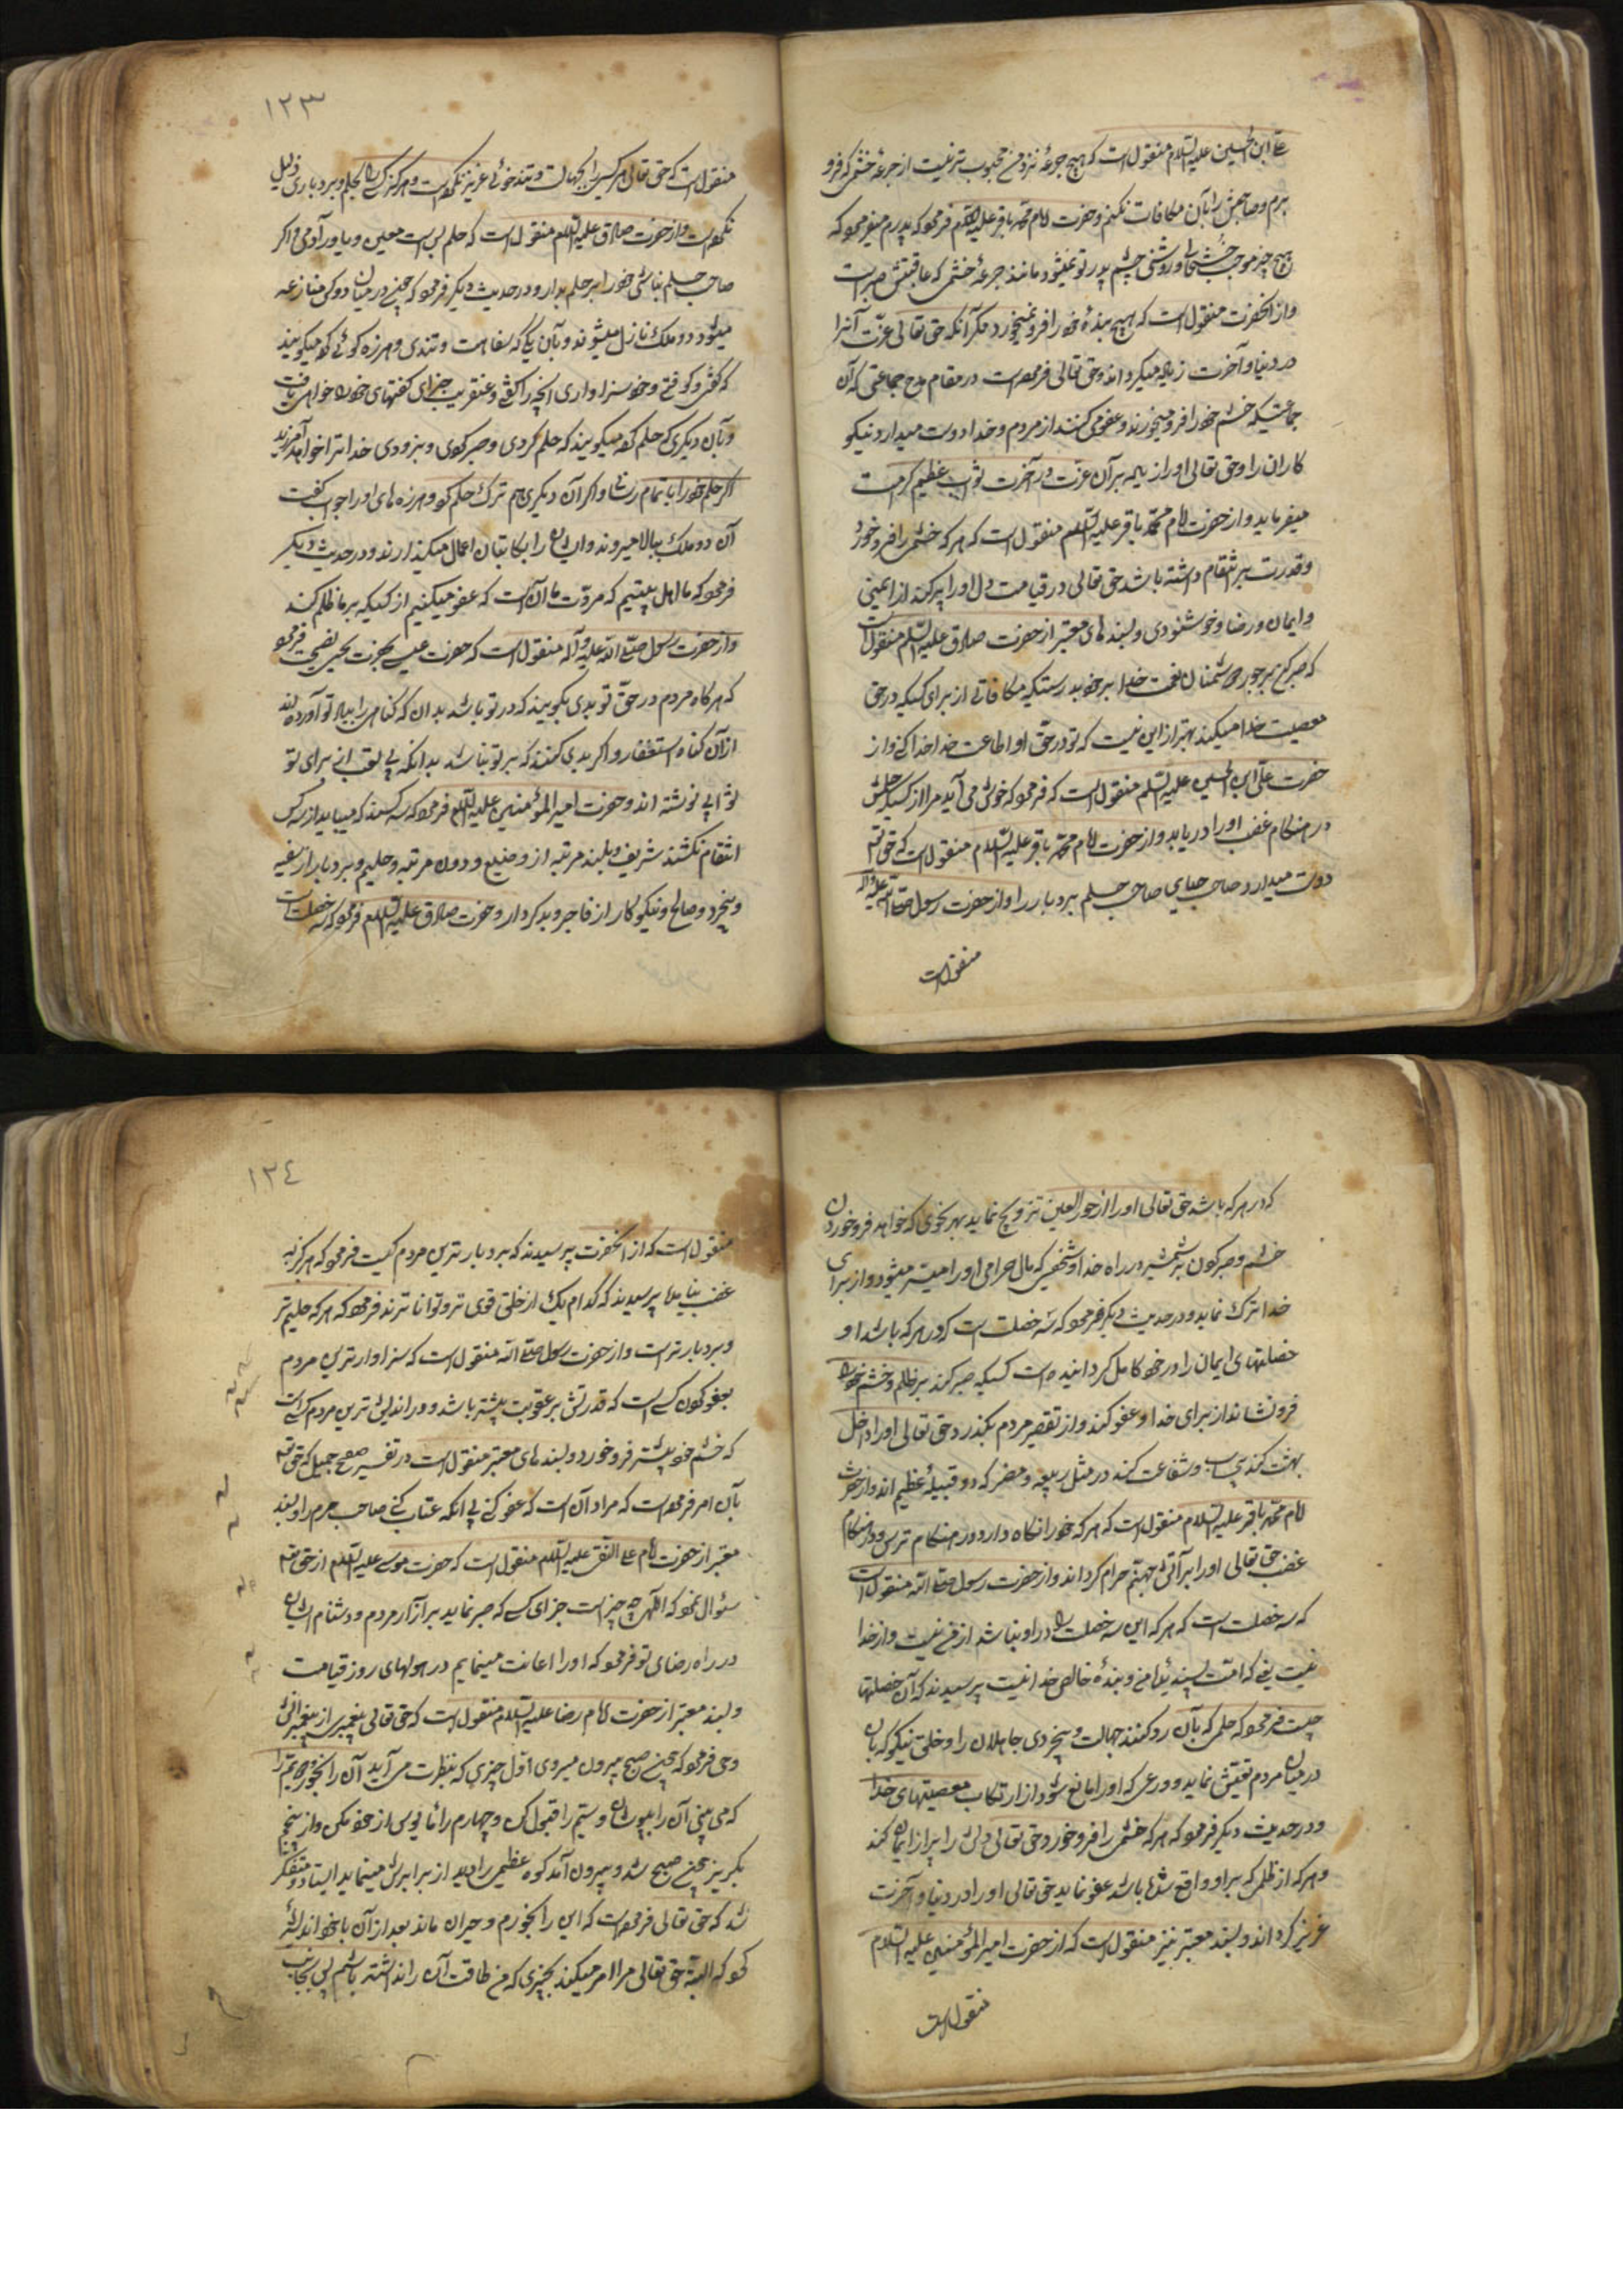 علی ابن الحسین علیه السلام منقول است که هیچ جرعه نزد من محبوب تر نیست از جرعه خشمی که فرو
برم و صاحبش را بآن مکافات نکنم و حضرت امام محمد باقر علیه السلام فرمود که پدرم میفرمود که
هیچ چیز موجب خشنودی و روشنی چشم پدر تو نمیشود مانند جرعهٔ خشمی که عاقبتش صبر است
و از آنحضرت منقول است که هیچ بندهٔ خشم خود را فرو نمیخورد مگر آنکه حق تعالی عزت آنرا
در دنیا و آخرت زیاده میگرداند و حق تعالی فرموده است در مقام مدح جماعتی که آن
جماعتیکه خشم خود را فرو میخورند و عفو می کنند از مردم و خدا دوست میدارد نیکو
کاران را و حق تعالی او را زیاده بر آن عزت در آخرت ثواب عظیم کرامت
میفرماید و از حضرت امام محمد باقر علیه السلام منقول است که هر که خشمی را فرو خورد
و قدرت بر انتقام داشته باشد حق تعالی در قیامت دل او را پر کند از ایمنی
و ایمان و رضا و خوشنودی و بسند های معتبر از حضرت صادق علیه السلام منقول است
که صبر کن بر جور دشمنان نعمت خدا بر خود بدرستیکه مکافاتی از برای کسیکه در حق تو
معصیت خدا میکند بهتر از این نیست که تو در حق او اطاعت خدا کنی و از
حضرت علی ابن الحسین علیه السلام منقول است که فرمود که خوش می آید مرا از کسیکه حلمش
در هنگام غضب او را دریابد و از حضرت امام محمد باقر علیه السلام منقول است که حق تعالی
دوست میدارد صاحب حیای صاحب حلم بردبار را و از حضرت رسول صلی الله علیه و آله
منقول است
۱۲۳
منقول است که حق تعالی هرگز کسی را بجهالت و تند خوئی عزیز نکرده است و هرگز کسی را بحلم و بردباری ذلیل
نکرده است و از حضرت صادق علیه السلام منقول است که حلم بس است معین و یاور آدمی و اگر
صاحب حلم نباشی خود را بر حلم بدار و در حدیث دیگر فرمود که چون در میان دو کس منازعه
میشود دو ملک نازل میشوند و بآن یکی که سفاهت و تندی و هرزه گوئی کرده میگویند
که گفتی و گفتی و خود سزاواری آنچه را گفتی و عنقریب جزای گفتهای خود را خواهی یافت
و بآن دیگری که حلم کرده میگویند که حلم کردی و صبر کردی و بزودی خدا ترا خواهد آمرزید
اگر حلم خود را باتمام رسانی و اگر آن دیگری هم ترک حلم کرد و هرزه های او را جواب گفت
آن دو ملک ببالا میروند و ایشان را بکاتبان اعمال میگذارند و در حدیث دیگر
فرمود که ما اهل بیتیم که مروت ما آنست که عفو میکنیم از کسیکه بر ما ظلم کند
و از حضرت رسول صلی الله علیه و آله منقول است که حضرت عیسی بحضرت یحیی نصیحت فرمود
که هرگاه مردم در حق تو بدی بگویند که در تو باشد بدان که گناهی را بیاد تو آورده اند
از آن گناه استغفار و اگر بدی کنند که بر تو نباشد بدانکه بی تعب از برای تو
ثوابی نوشته اند و حضرت امیر المؤمنین علیه السلام فرمود که سه کسند که میباید از سه کس
انتقام نکشند شریف و بلند مرتبه از وضیع و دون مرتبه و حلیم و بردبار از سفیه
و بیخرد و صالح و نیکو کار از فاجر و بدکردار و حضرت صادق علیه السلام فرمود که سه خصلت است
که در هر که باشد حق تعالی او را از حور العین تزویج نماید بهر نحوی که خواهد فرو خوردن
خشم و صبر کردن بر شمشیر در راه خدا و شخصی که مال حرامی او را میسر میشود و از برای
خدا ترک نماید و در حدیث دیگر فرمود که سه خصلت است که در هر که باشد او
خصلتهای ایمان را در خود کامل گردانیده است کسیکه صبر کند بر ظلم و خشم خود را
فرو نشاند از برای خدا و عفو کند و از تقصیر مردم بگذرد حق تعالی او را داخل
بهشت کند بی حساب و شفاعت کند در مثل ربیعه و مضر که دو قبیلهٔ عظیم اند و از حضرت
امام محمد باقر علیه السلام منقول است که هر که خود را نگاه دارد در هنگام ترس و در هنگام
غضب حق تعالی او را بر آتش جهنم حرام گرداند و از حضرت رسول صلی الله منقول است
که سه خصلت است که هر که این سه خصلت را در او نباشد از من نیست و از خدا
نیست یعنی که امت پسندیدهٔ من و بندهٔ خالص خدا نیست پرسیدند که آن خصلتها
چیست فرمود که حلمی که بآن رد کنند جهالت و بیخردی جاهلان را و خلق نیکو که بآن
در میان مردم تعیش نماید و ورعی که او را مانع شود از ارتکاب معصیتهای خدا
و در حدیث دیگر فرمود که هر که خشمی را فرو خورد حق تعالی دلش را پر از ایمان کند
و هر که از ظلمی که بر او واقع شده باشد عفو نماید حق تعالی او را در دنیا و آخرت
عزیز گرداند و بسند معتبر نیز منقول است که از حضرت امیر المؤمنین علیه السلام
منقول است
۱۲٤
منقول است که از آنحضرت پرسیدند که بردبار ترین مردم کیست فرمود که هرگز به
غضب نیاید پرسیدند که کدام یک از خلق قوی تر و توانا ترند فرمود که هر که حلیم تر
و بردبار تر است و از حضرت رسول صلی الله منقول است که سزاوار ترین مردم
بعفو کردن کسی است که قدرتش بر عقوبت بیشتر باشد و دور اندیش ترین مردم کسی است
که خشم خود بیشتر فرو خورد و بسند های معتبر منقول است در تفسیر صفح جمیل که حق تعالی
بآن امر فرموده است که مراد آن است که عفو کنی بی آنکه عتاب کنی صاحب جرم را و بسند
معتبر از حضرت امام علی النقی علیه السلام منقول است که حضرت موسی علیه السلام از حق تعالی
سئوال نمود که الهی چه چیز است جزای کسی که صبر نماید بر آزار مردم و دشنام ایشان
در راه رضای تو فرمود که او را اعانت مینمایم در هولهای روز قیامت
و بسند معتبر از حضرت امام رضا علیه السلام منقول است که حق تعالی پیغمبری از پیغمبرانش
وحی فرمود که چون صبح بیرون میروی اول چیزی که بنظرت می آید آن را بخور و دویم را
که می بینی آن را بپوشان و سیم را قبول کن و چهارم را نا امید از خود مکن و از پنجم
بگریز چون صبح شد و بیرون آمد کوه عظیمی را دید از برابرش مینماید ایستاد و متفکر
شد که حق تعالی فرموده است که این را بخورم و حیران ماند بعد از آن با خود اندیشه
کرد که البته حق تعالی مرا امر نمیکند بچیزی که من طاقت آن را نداشته باشم پس بجانب